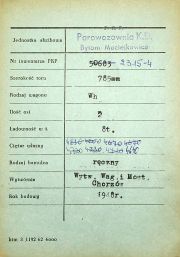 P. K. P.
Jednostka służbowa Parowozownia K.D.
Bytom Maciejkowice
Nr inwentarza PKP 50683- 2315-4
Szerokość toru 785mm
Rodzaj wagonu Wh
Ilość osi 2
Ładowność w t 8t.
Ciężar własny
Rodzaj hamulca ręczny
Wyposażenie Wytw. Wag. i Most.
Chorzów
Rok budowy 1948r.